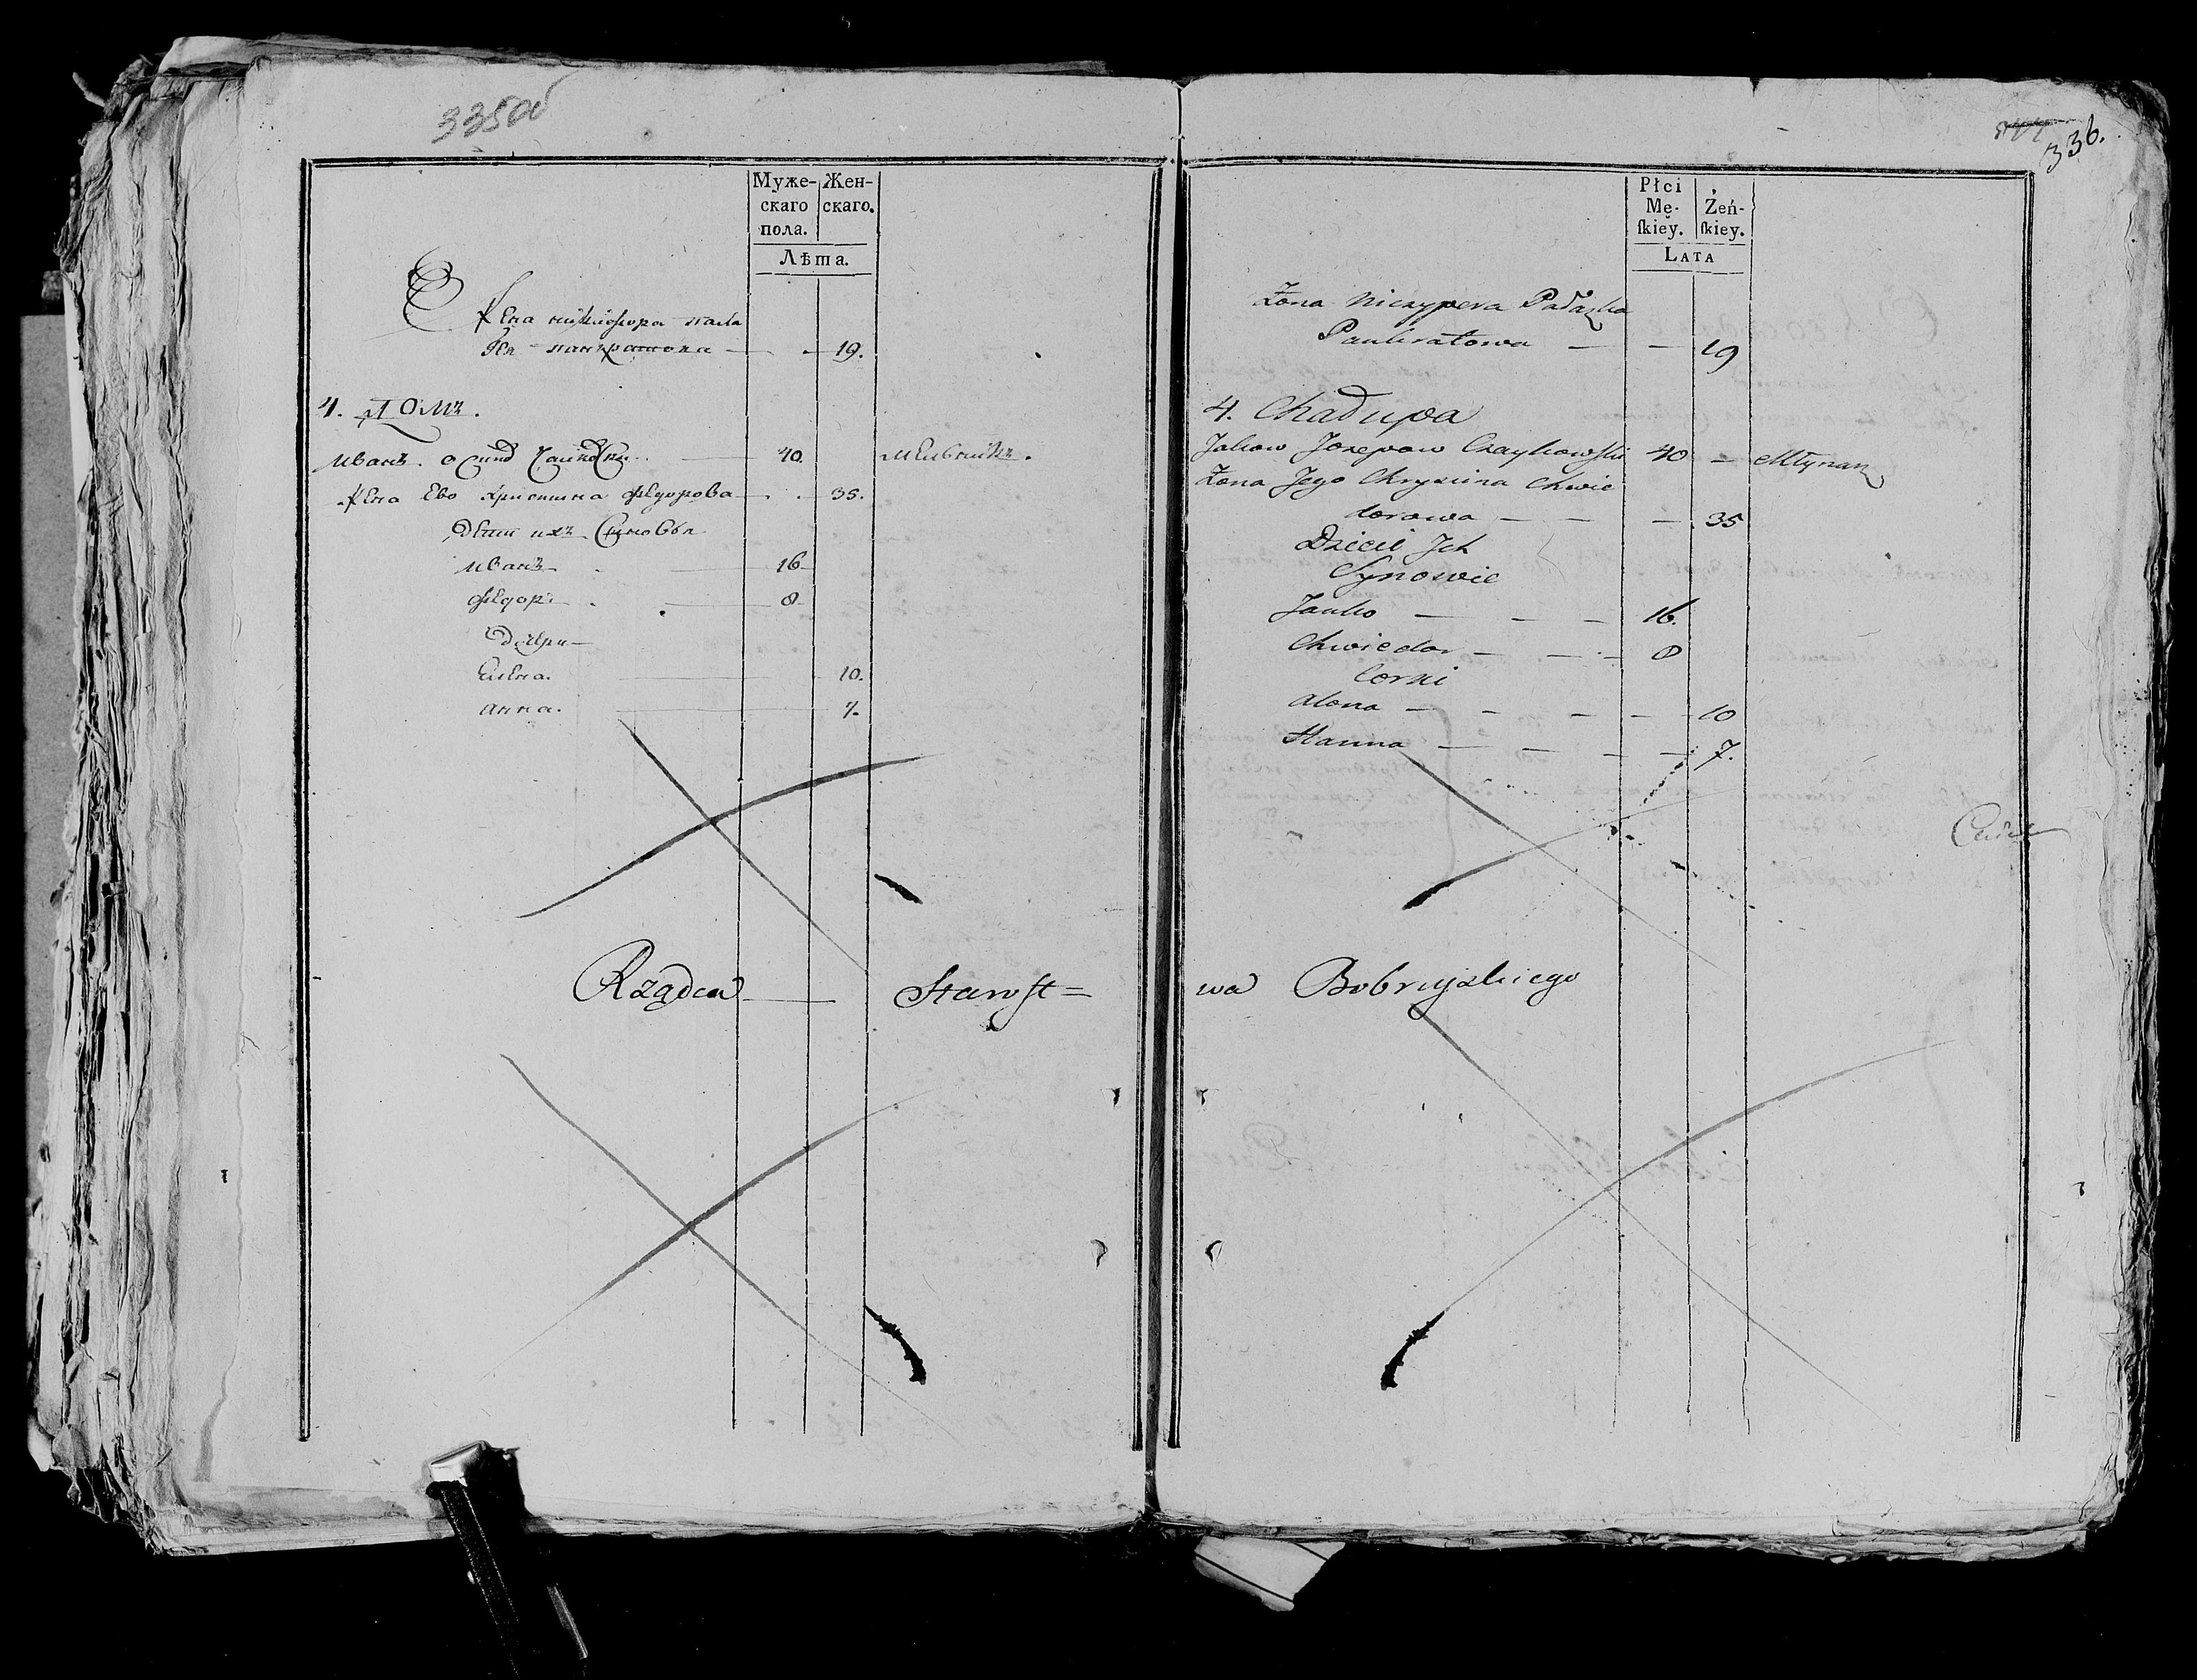 335об
Муже-
скаго
пола.
Жен-
скаго.
Лѣта.
Жена никифора пала
гея панкратова — 19.
4. ДОМЪ.
Иванъ осипов Чайковски — 40. мельникъ.
Жена Ево христина федорова — 35.
Дети ихъ Сыновья
иванъ — 16
федоръ — 8
Дочери
Елена. — 10.
анна. — 7.
Rządca — Starost=
336.
Płci
Mę-
ſkiey.
Żeń-
ſkiey.
LATA
Żona Niczypera Pałaszka
Pankratowa — — 19
4. Chałupa
Józepow Czaykowski 40 — Młynarz
Żona Jego Chrystina Chwie
dorowa — — — 35
Dzieci Jch
Synowie
Janko — — — 16.
Chwiedor — — — 8
Corki
Alona — — — — 10
Hanna — — — — 7.
wa Bobruyskiego